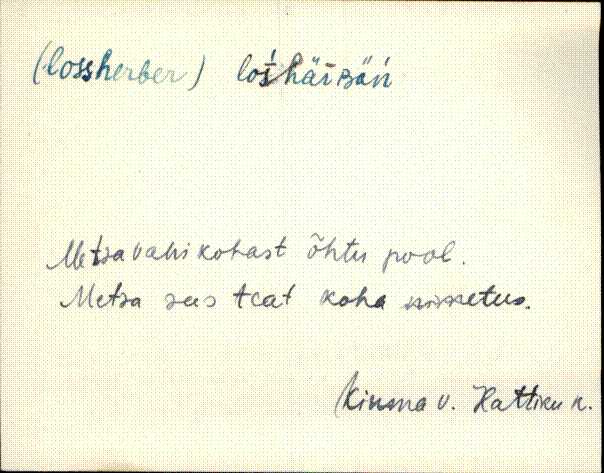 (lossherber) lośhäŕʙäŕ
Metsavahi kohast õhtu pool.
Metsa sees teat koha nimetus.
Kiuma v. Hattiku k.